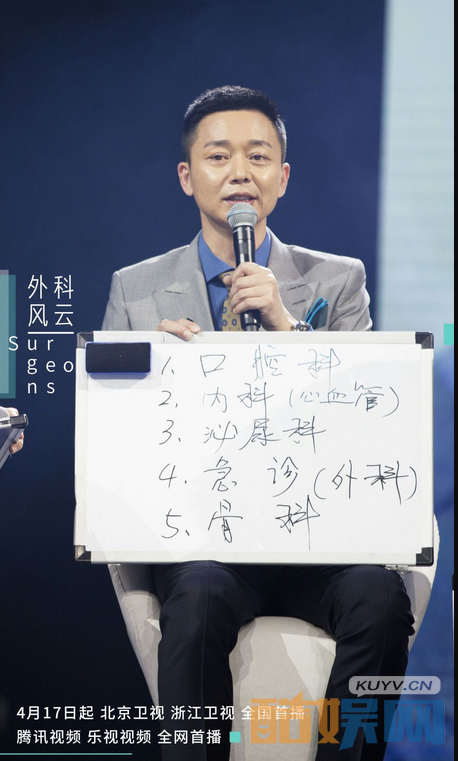 外科
风云
Sur
geo
ns
1、口腔科
2、内科(心血管)
3、泌尿科
4、急诊(外科)
5、骨科
KUYV.CN
酷娱网
4月17日起 北京卫视 浙江卫视 全国首播
腾讯视频 乐视视频 全网首播